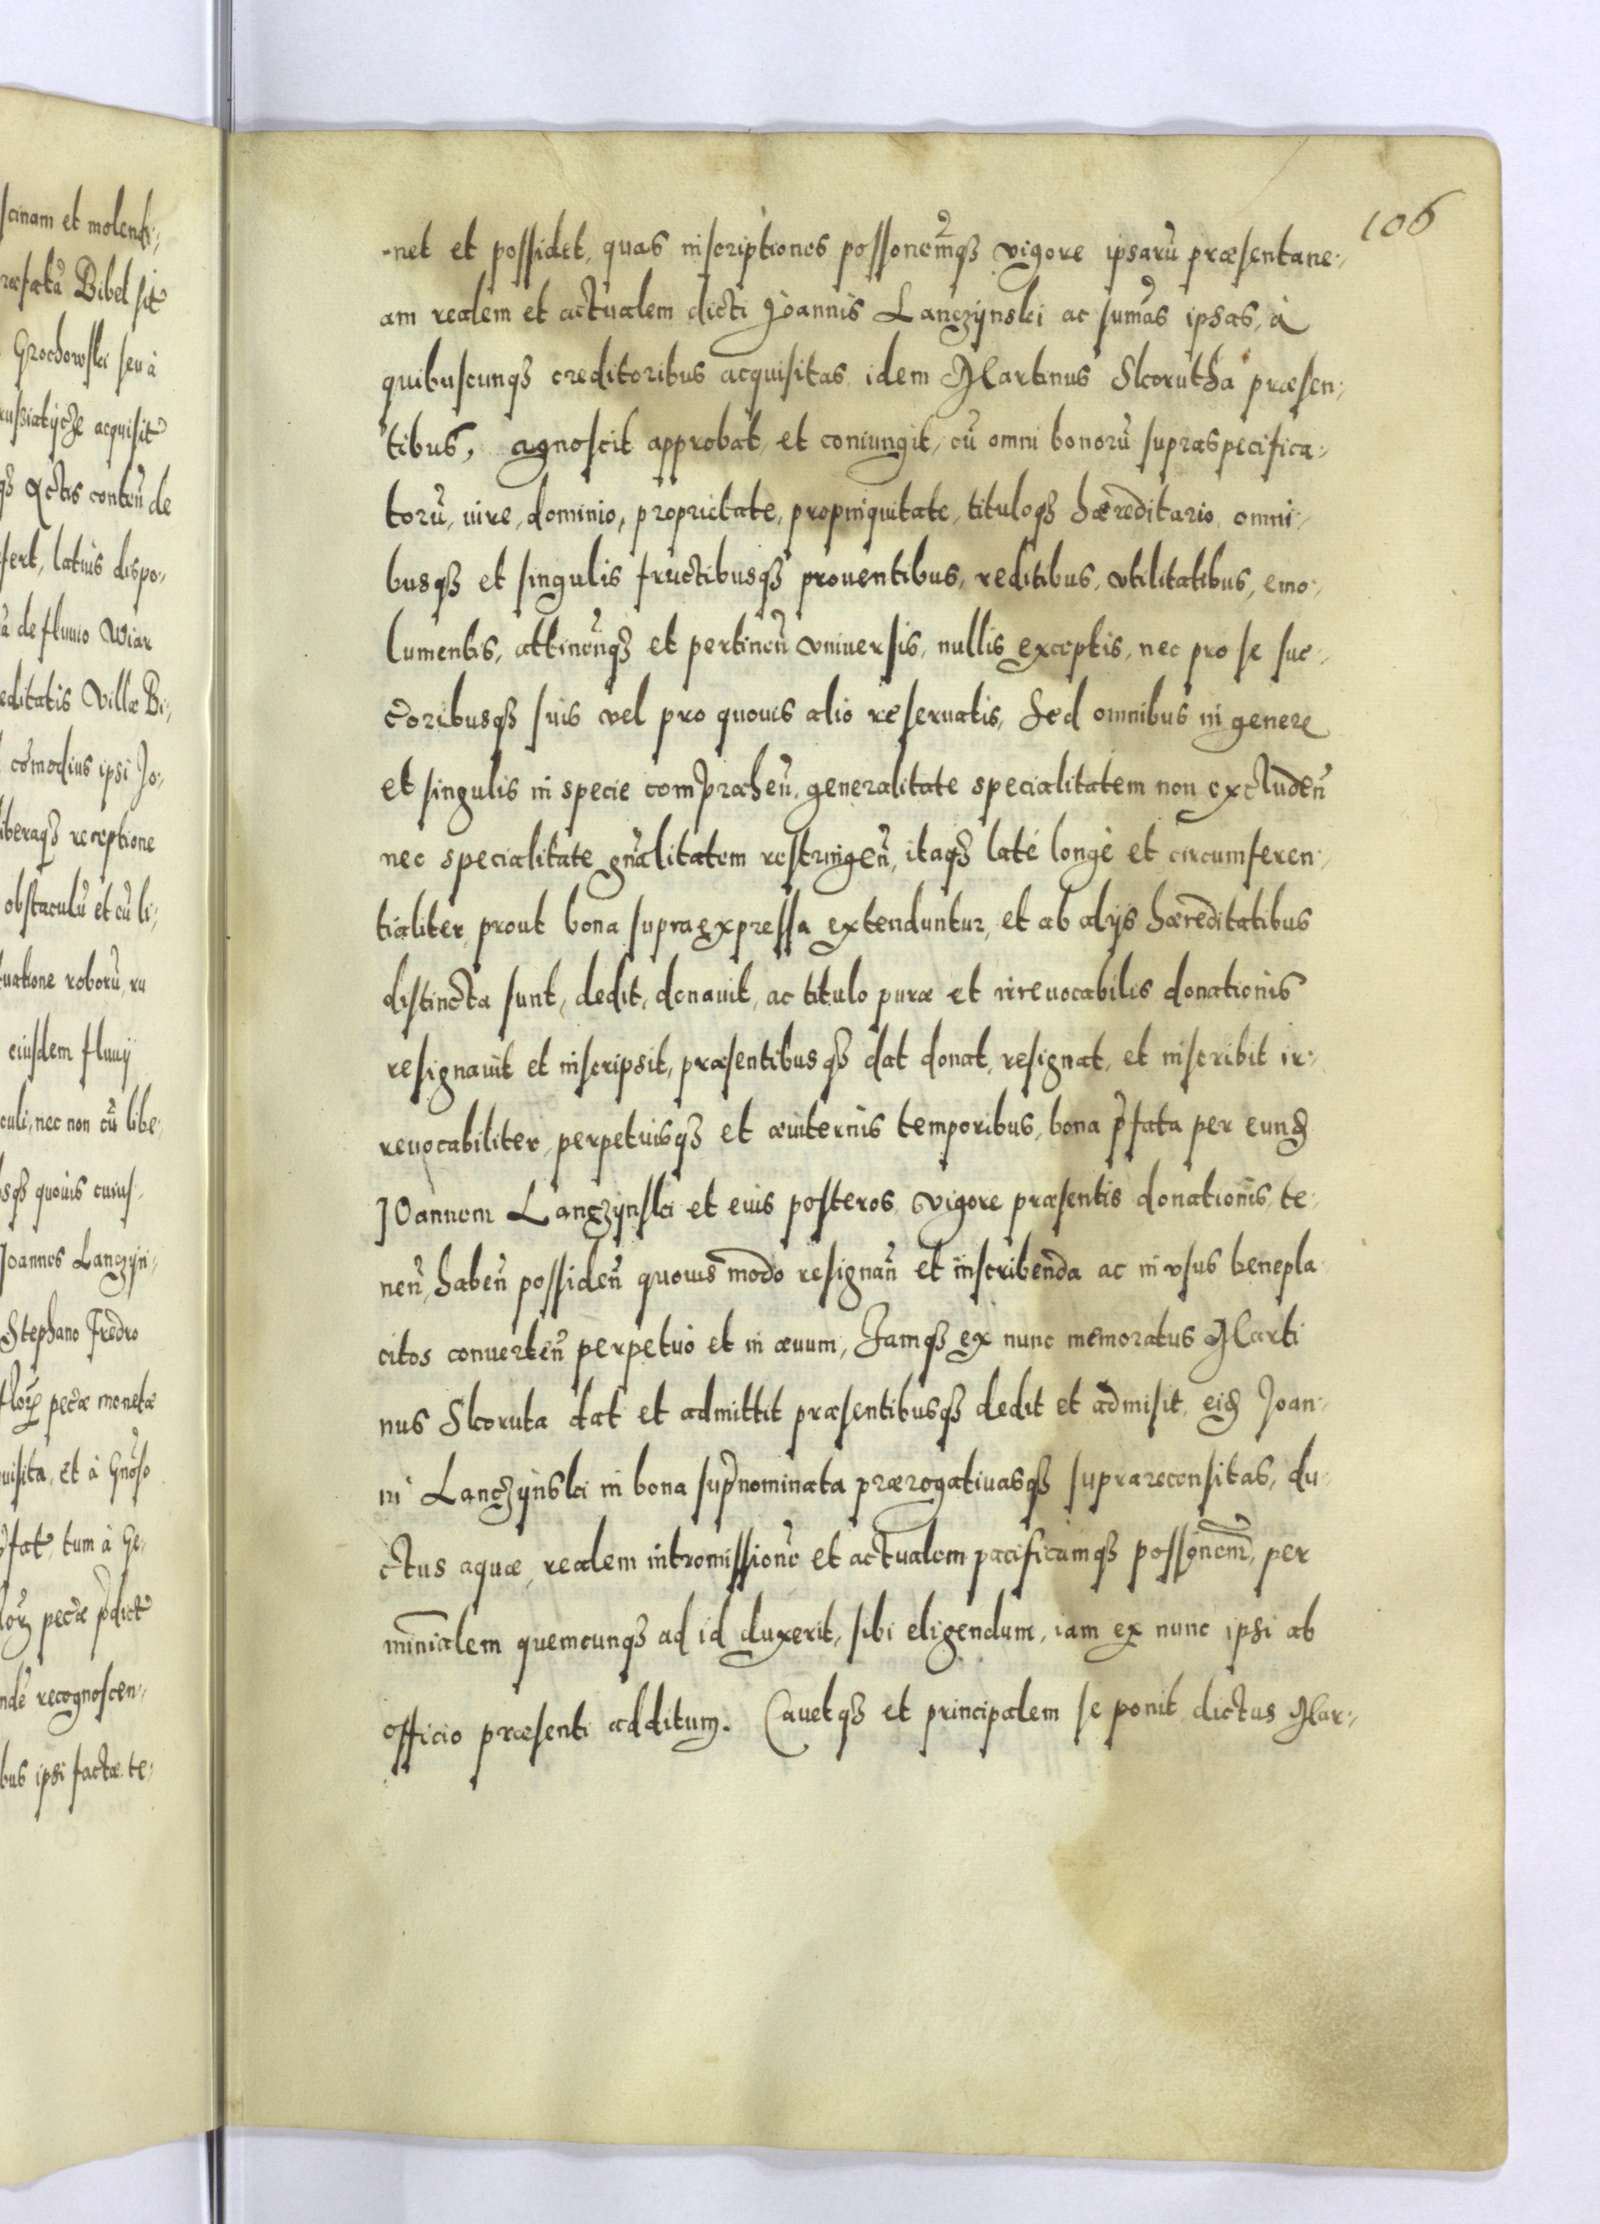 scinam et molendi:
ræfatũ Bibel sit
Grochowski seu à
russiatycze acquisit
qȝ actis conteñ de
fert, latius dispo,
a de fluuio Wiar
editatis Villæ Bi:
comodius ipsi Jo:
iberaqȝ receptione
obstaculũ et cũ li:
tuatione roborũ, ru
eiusdem fluuij
culi, nec non cũ libe
sqȝ quouis cuius
Joannes Lanczyn:
Stephano Fredro
florꝝ pecæ monetæ
uisita, et à Gnoso
p̃fat, tum à Ge:
lorꝝ pecæ p̃dict
nde recognoscen:
bus ipsi factæ te:
106
-net et possidet, quas inscriptiones possonemqȝ vigore ipsarũ præsentane:
am realem et actualem dicti Joannis Lanczynski ac sumas ipsas, à
quibuscunqȝ creditoribus acquisitas idem Martinus Skorutha præsen:
tibus, agnoscit approbat, et coniungit, cũ omni bonorũ supraspecifica:
torũ, iure, dominio, proprietate, propinquitate, tituloqȝ hæreditario omni:
busqȝ et singulis fructibusqȝ prouentibus, reditibus, vtilitatibus, emo:
lumentis, attineñqȝ et pertineñ vniuersis, nullis exceptis, nec pro se suc:
c̃oribusqȝ suis vel pro quouis alio reseruatis, Sed omnibus in genere
et singulis in specie compræheñ, generalitate specialitatem non excludeñ
nec specialitate gñalitatem restringeñ, itaqȝ laté longè et circumferen:
tialiter prout bona supraexpressa extenduntur, et ab alijs hæreditatibus
distincta sunt, dedit, donauit, ac titulo puræ et irreuocabilis donationis
resignauit et inscripsit, præsentibusqȝ dat donat, resignat, et inscribit ir:
reuocabiliter, perpetuisqȝ et æuiternis temporibus, bona p̃fata per eunȝ
Joannem Lanczynski et eius posteros, vigore præsentis donationis, te:
neñ, habeñ possideñ quouismodo resignañ et inscribenda ac in vsus benepla
citos conuerteñ perpetuò et in æuum, Jamqȝ ex nunc memoratus Marti
nus Skoruta dat et admittit præsentibusqȝ dedit et admisit, eiȝ Joan:
ni Lanczynski in bona sup̃nominata prærogatiuasqȝ suprarecensitas, du:
ctus aquæ, realem intromissionẽ et actualem pacificamqȝ possonem̃, per
minĩalem quemcunqȝ ad id duxerit, sibi eligendum, iam ex nunc ipsi ab
officio præsenti additum. Cauetqȝ et principalem se ponit dictus Mar: